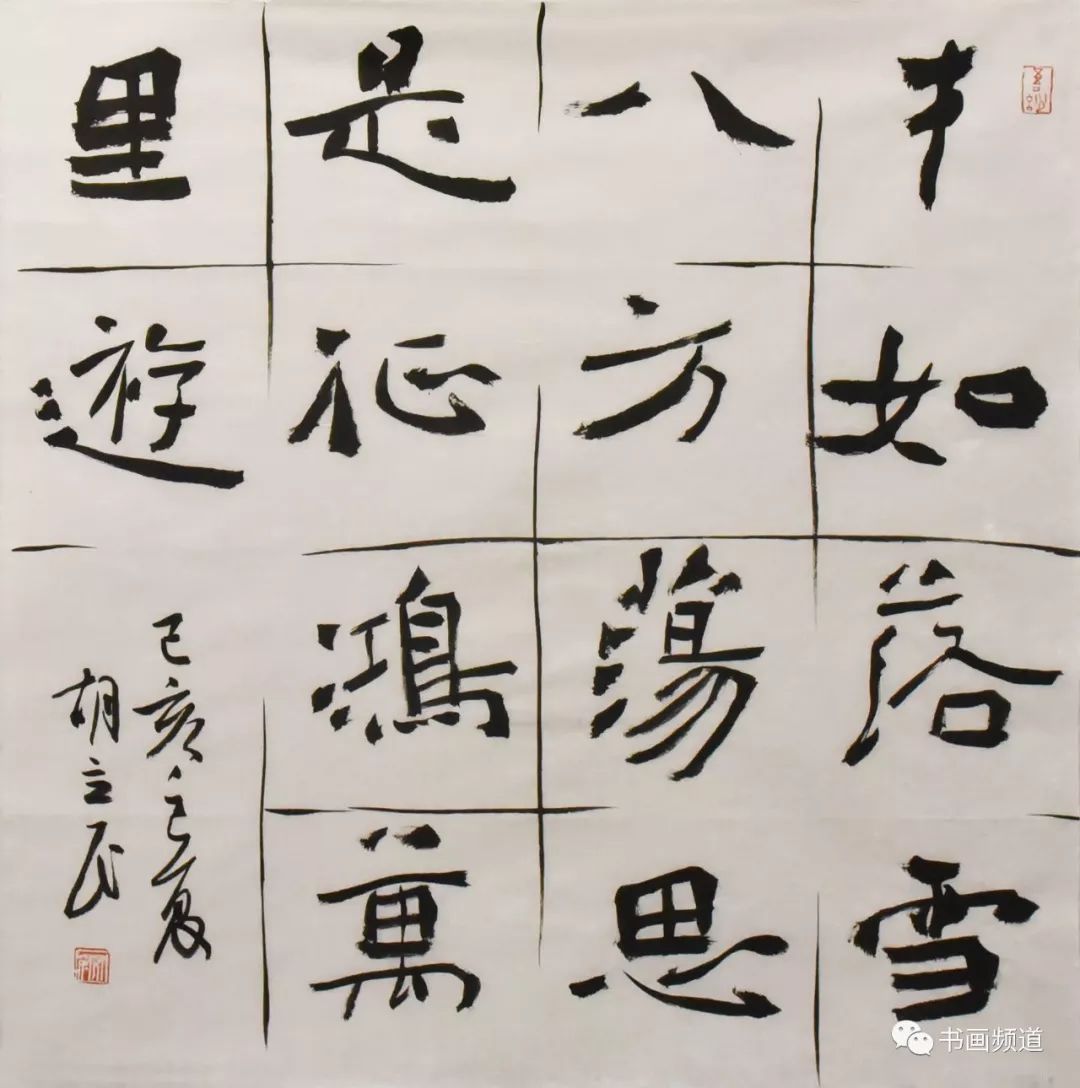 才如落雪
八方蕩思
是征鴻萬
里遊
己亥之夏
胡立民
书画频道